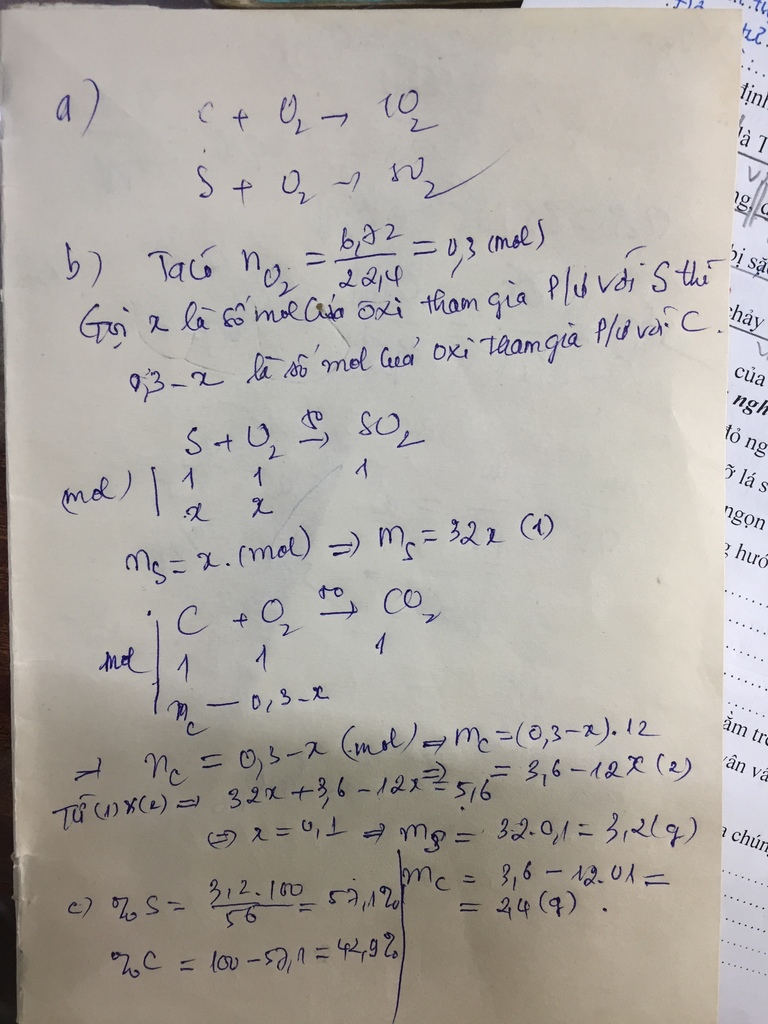 a) C + O₂ → CO₂
S + O₂ → SO₂
b) Ta có n_O₂ = 6,72/22,4 = 0,3 (mol)
Gọi x là số mol của oxi tham gia p/ư với S thì
0,3 - x là số mol của oxi tham gia p/ư với C.
S + O₂ →(t⁰) SO₂
(mol) | 1 1 1
x x
n_S = x. (mol) ⇒ m_S = 32x (1)
C + O₂ →(t⁰) CO₂
mol | 1 1 1
n_C — 0,3 - x
→ n_C = 0,3 - x (mol) ⇒ m_C = (0,3 - x) . 12
⇒ = 3,6 - 12x (2)
Từ (1) & (2) ⇒ 32x + 3,6 - 12x = 5,6
⇔ x = 0,1 ⇒ m_S = 32.0,1 = 3,2 (g)
m_C = 3,6 - 12.01 =
= 2,4 (g) .
c) % S = 3,2.100/56 = 57,1%
% C = 100 - 57,1 = 42,9%
định
là T
bị sặ
cháy
của
ngh
đỏ ng
lá s
ngọn
hướ
ằm tr
vân vấ
a chún